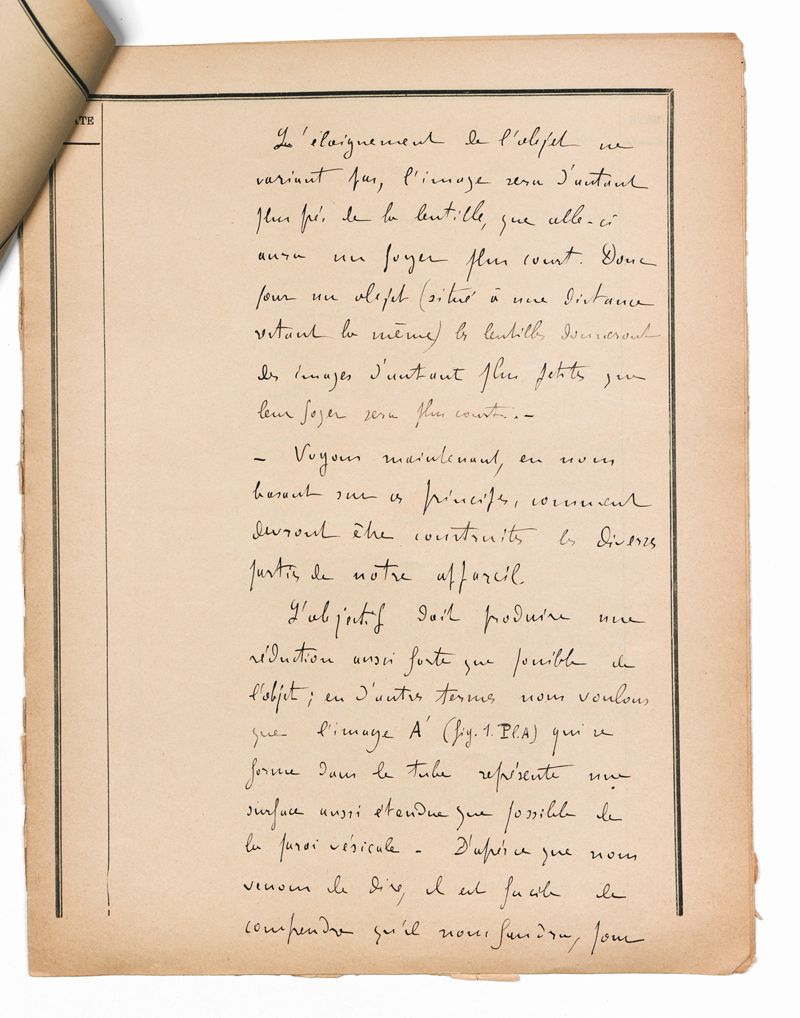 ATE
L'éloignement de l'objet ne
variant pas, l'image sera d'autant
plus près de la lentille, que celle-ci
aura un foyer plus court. Donc
pour un objet (situé à une distance
restant la même) les lentilles donneront
des images d'autant plus petites que
leur foyer sera plus court. –
– Voyons maintenant, en nous
basant sur ces principes, comment
devront être construites les diverses
parties de notre appareil.
L'objectif doit produire une
réduction aussi forte que possible de
l'objet; en d'autres termes nous voulons
que l'image A' (fig. 1. Pl. A) qui se
forme dans le tube représente une
surface aussi étendue que possible de
la paroi vésicale – D'après ce que nous
venons de dire, il est facile de
comprendre qu'il nous faudra, pour